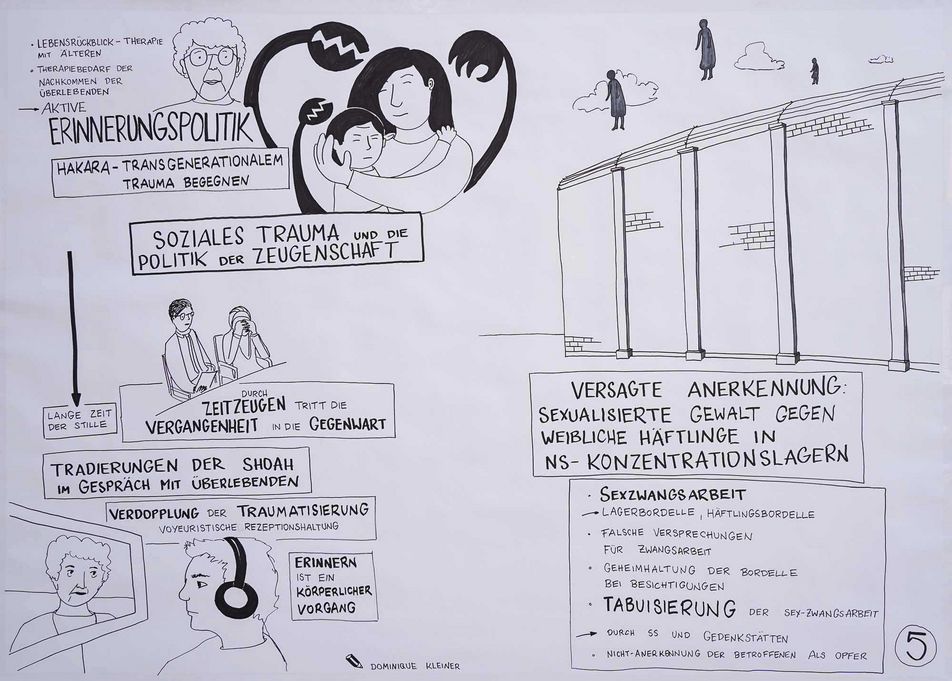 · LEBENSRÜCKBLICK-THERAPIE
MIT ÄLTEREN
· THERAPIEBEDARF DER
NACHKOMMEN DER
ÜBERLEBENDEN
→ AKTIVE
ERINNERUNGSPOLITIK
HAKARA - TRANSGENERATIONALEM
TRAUMA BEGEGNEN
SOZIALES TRAUMA UND DIE
POLITIK DER ZEUGENSCHAFT
LANGE ZEIT
DER STILLE
DURCH
ZEITZEUGEN TRITT DIE
VERGANGENHEIT IN DIE GEGENWART
TRADIERUNGEN DER SHOAH
IM GESPRÄCH MIT ÜBERLEBENDEN
VERDOPPLUNG DER TRAUMATISIERUNG
VOYEURISTISCHE REZEPTIONSHALTUNG
ERINNERN
IST EIN
KÖRPERLICHER
VORGANG
DOMINIQUE KLEINER
VERSAGTE ANERKENNUNG:
SEXUALISIERTE GEWALT GEGEN
WEIBLICHE HÄFTLINGE IN
NS-KONZENTRATIONSLAGERN
· SEXZWANGSARBEIT
→ LAGERBORDELLE, HÄFTLINGSBORDELLE
· FALSCHE VERSPRECHUNGEN
FÜR ZWANGSARBEIT
· GEHEIMHALTUNG DER BORDELLE
BEI BESICHTIGUNGEN
· TABUISIERUNG DER SEX-ZWANGSARBEIT
→ DURCH SS UND GEDENKSTÄTTEN
· NICHT-ANERKENNUNG DER BETROFFENEN ALS OPFER
5